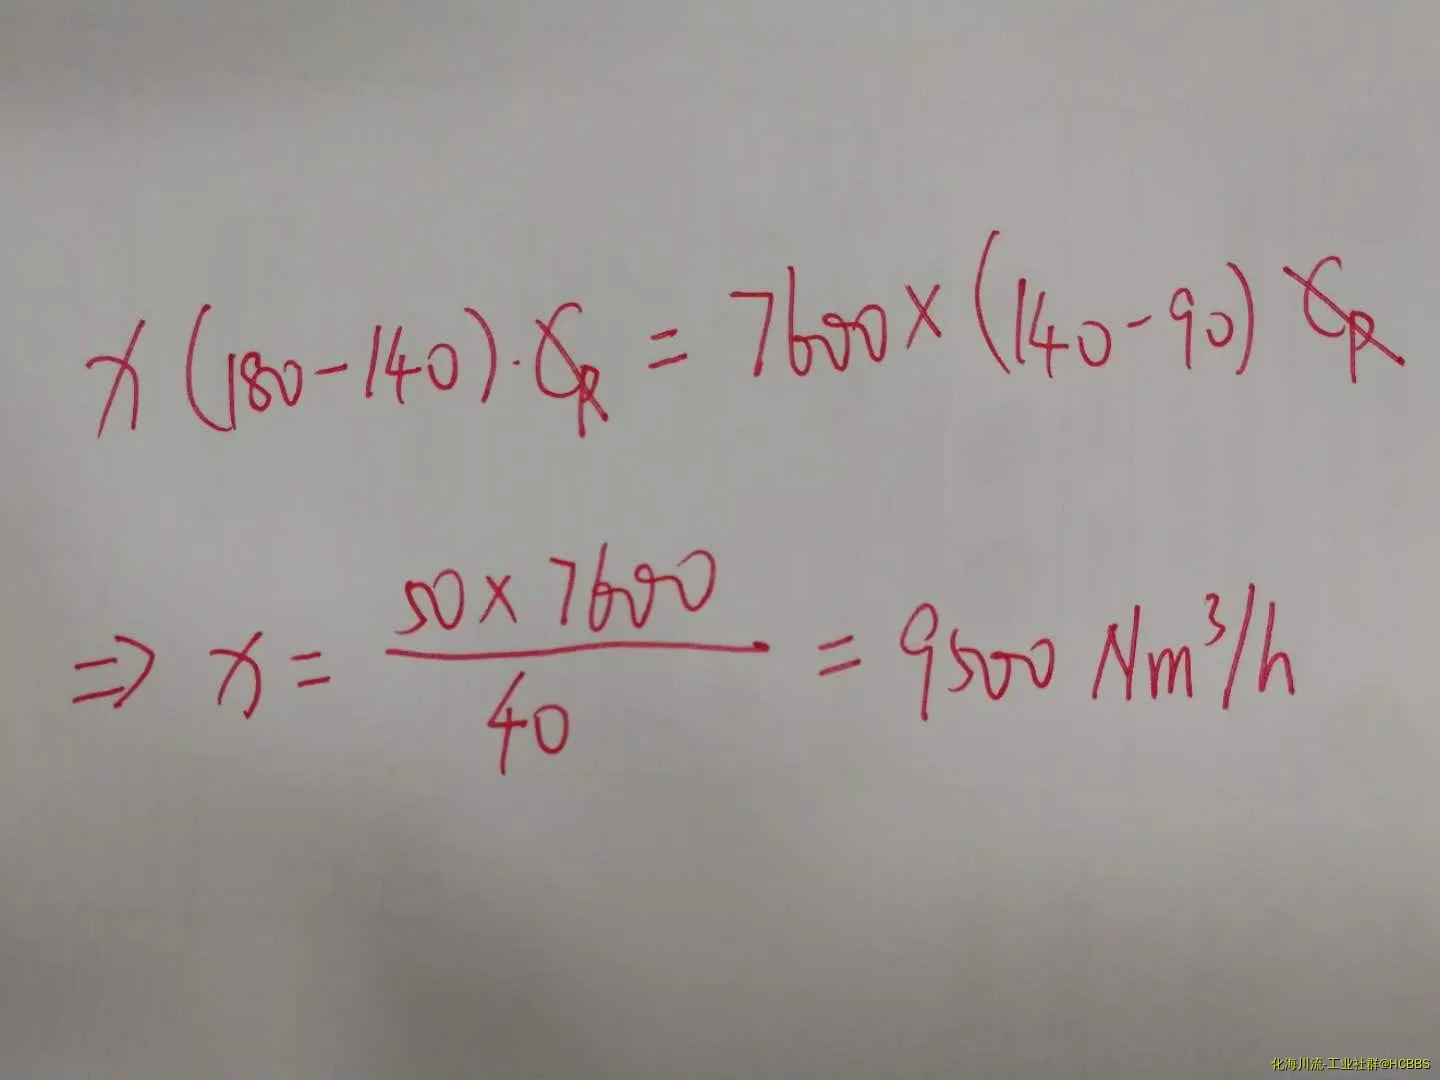 x(180-140)·Cp = 7600×(140-90)Cp
⇒ x = 50×7600/40 = 9500 Nm³/h
化海川流-工业社群@HCBBS